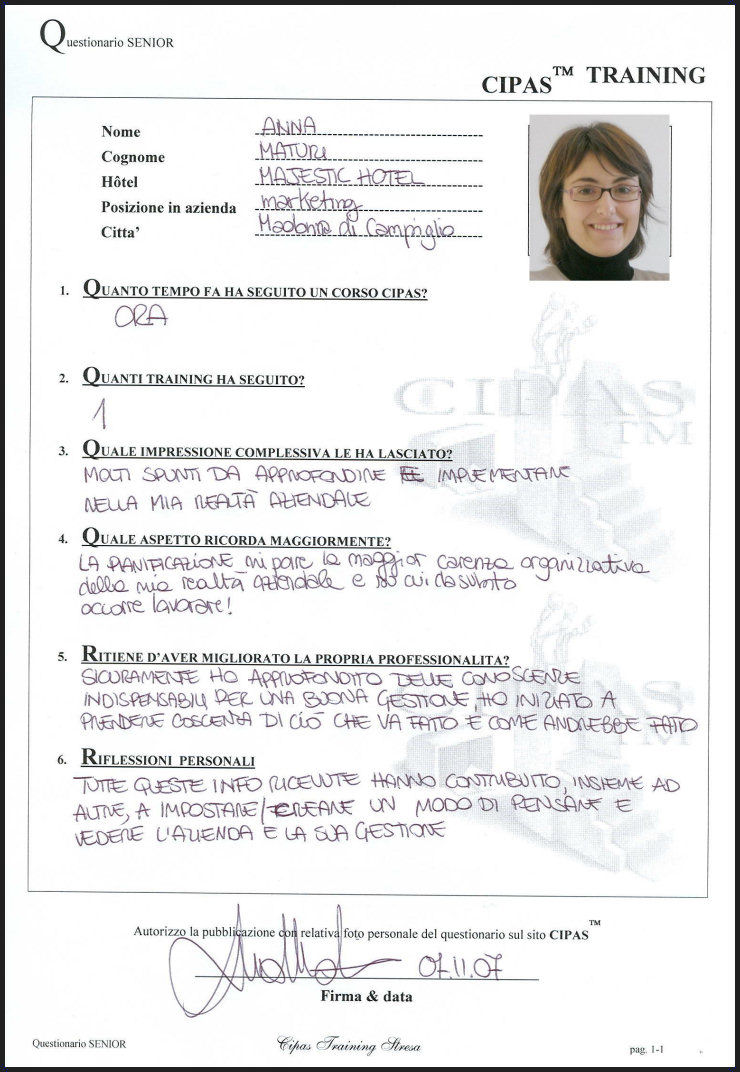 Questionario SENIOR
CIPAS™ TRAINING
Nome ANNA
Cognome MATURI
Hôtel MAJESTIC HOTEL
Posizione in azienda marketing
Citta' Madonna di Campiglio
1. QUANTO TEMPO FA HA SEGUITO UN CORSO CIPAS?
ORA
2. QUANTI TRAINING HA SEGUITO?
1
CIPAS
TM
3. QUALE IMPRESSIONE COMPLESSIVA LE HA LASCIATO?
MOLTI SPUNTI DA APPROFONDIRE E IMPLEMENTARE
NELLA MIA REALTÀ AZIENDALE
4. QUALE ASPETTO RICORDA MAGGIORMENTE?
LA PIANIFICAZIONE mi pare la maggior carenza organizzativa
della mia realtà aziendale e su cui da subito
occorre lavorare!
5. RITIENE D'AVER MIGLIORATO LA PROPRIA PROFESSIONALITA?
SICURAMENTE HO APPROFONDITO DELLE CONOSCENZE
INDISPENSABILI PER UNA BUONA GESTIONE, HO INIZIATO A
PRENDERE COSCENZA DI CIÒ CHE VA FATTO E COME ANDREBBE FATTO
CIPAS
TM
6. RIFLESSIONI PERSONALI
TUTTE QUESTE INFO RICEVUTE HANNO CONTRIBUITO, INSIEME AD
ALTRE, A IMPOSTARE/CREARE UN MODO DI PENSARE E
VEDERE L'AZIENDA E LA SUA GESTIONE
Autorizzo la pubblicazione con relativa foto personale del questionario sul sito CIPAS™
07.11.07
Firma & data
Questionario SENIOR
Cipas Training Stresa
pag. 1-1